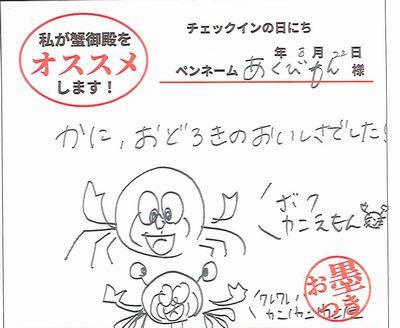 私が蟹御殿を
オススメ
します!
チェックインの日にち
年 8月 22日
ペンネーム あくびもん 様
かに、おどろきのおいしさでした!
ボク
カニえもん
お墨つき